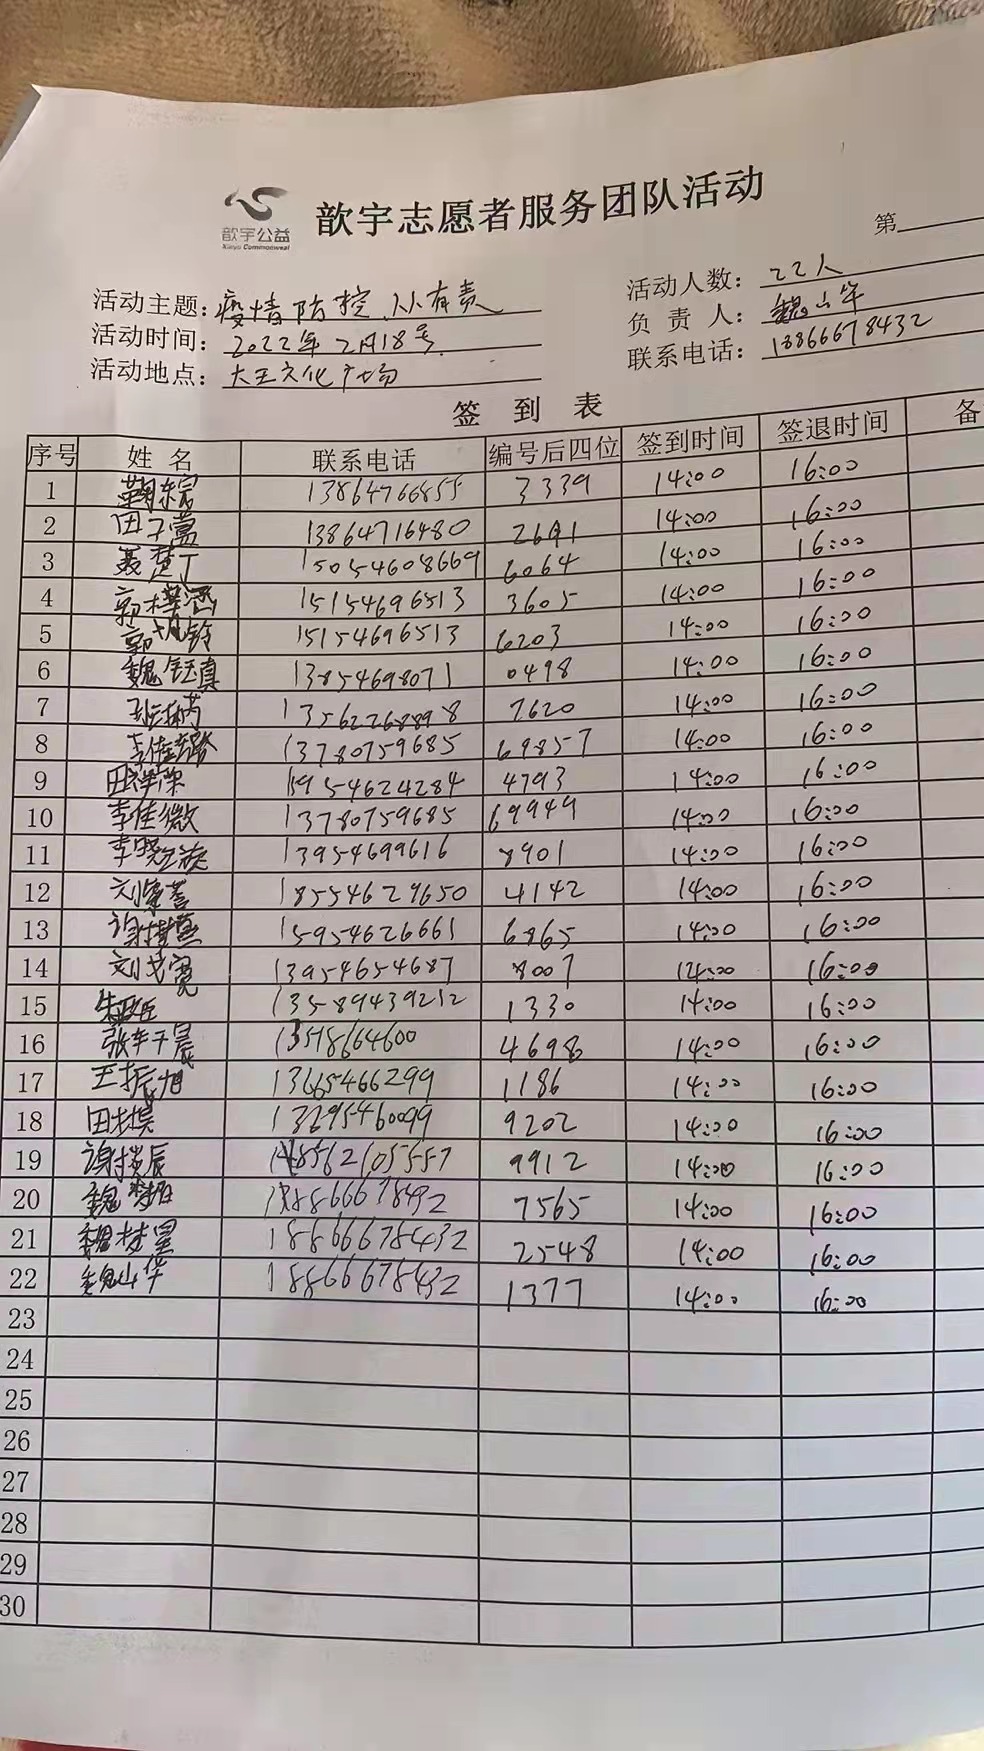 歆宇公益
Xinyu Commonweal
歆宇志愿者服务团队活动
第
活动主题：疫情防控,人人有责
活动人数：22人
活动时间：2022年2月18号
负责人：魏山华
活动地点：大王文化广场
联系电话：18866678432
签到表
序号 姓名 联系电话 编号后四位 签到时间 签退时间 备
1 13864766855 3339 14:00 16:00
2 田子萱 13864716480 2691 14:00 16:00
3 聂楚丁 15054608669 6064 14:00 16:00
4 郭梓涵 15154696513 3605 14:00 16:00
5 15154696513 6203 14:00 16:00
6 魏钰真 13854698071 0498 14:00 16:00
7 7620 14:00 16:00
8 13780759685 69857 14:00 16:00
9 19954624284 4793 14:00 16:00
10 李佳微 13780759685 69949 14:00 16:00
11 13954699616 8901 14:00 16:00
12 18554629650 4142 14:00 16:00
13 15954626661 6865 14:00 16:00
14 13954654687 8007 14:00 16:00
15 13589439212 1330 14:00 16:00
16 4698 14:00 16:00
17 王振旭 13665466299 1186 14:00 16:00
18 13295460099 9202 14:00 16:00
19 9912 14:00 16:00
20 18866678432 7565 14:00 16:00
21 18866678432 2548 14:00 16:00
22 魏山华 18866678432 1377 14:00 16:00
23
24
25
26
27
28
29
30